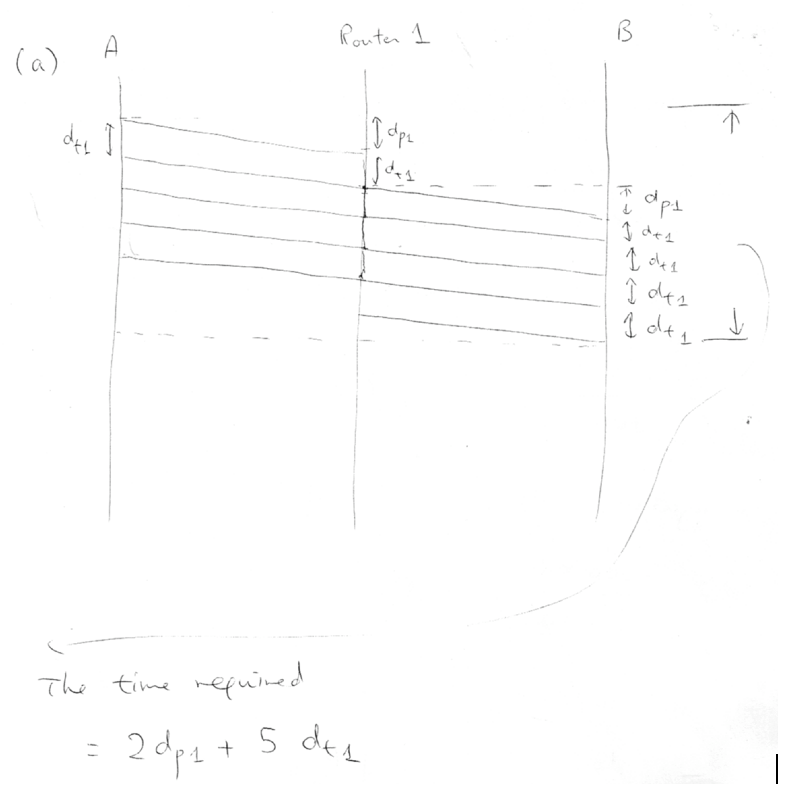 (a) A Router 1 B
dt1 dp1
dt1
dp1
dt1
dt1
dt1
dt1
The time required
= 2dp1 + 5 dt1